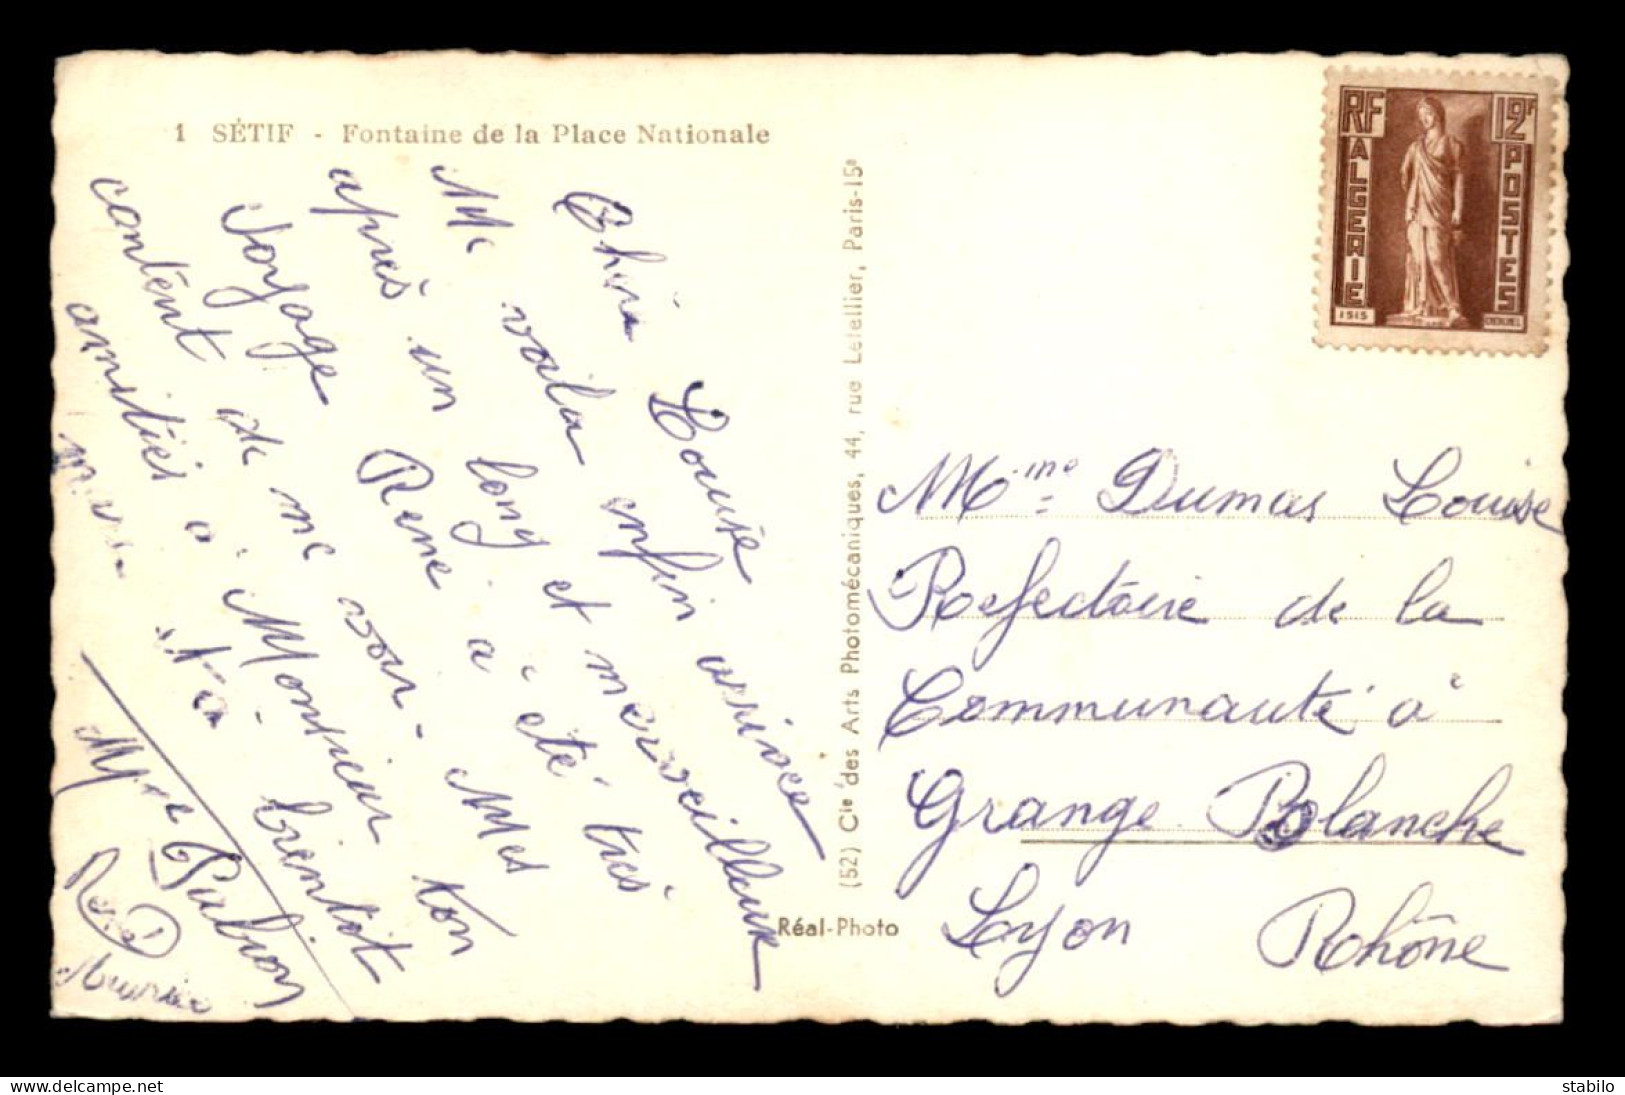 1 SÉTIF - Fontaine de la Place Nationale
Chère Louise
Me voila enfin arrivée
après un long et merveilleux
voyage René a été très
contènt de me voir. Mes
amitiés à Monsieur ton
à bientôt
Mme Pubion
René
Maurice
(52) Cie des Arts Photomécaniques, 44, rue Letellier, Paris-15e
Réal-Photo
RF
ALGERIE
12F
POSTES
ISIS
CHERCHEL
Mme Dumas Louise
Refectoire de la
Communauté à
Grange Blanche
Lyon Rhône
www.delcampe.net
stabilo